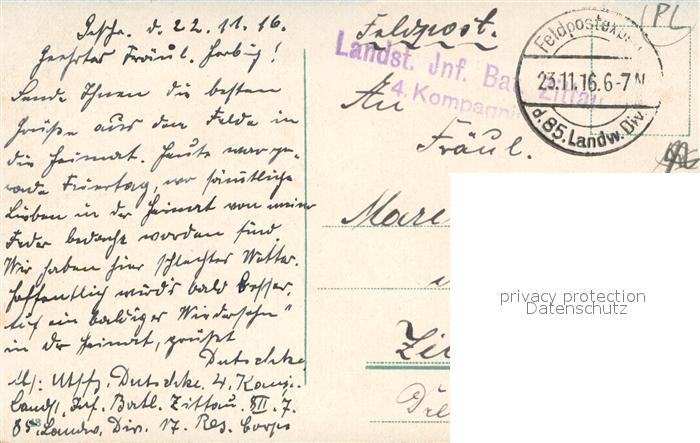 d. 22.11.16.
Geehrtes Fräul. Herbig!
Sende Ihnen die besten
Grüße aus dem Felde in
die Heimat. Heute war ge-
rade Feiertag, wo sämtliche
Lieben in der Heimat von meiner
Feder bedacht worden sind.
Wir haben hier schlechtes Wetter.
Hoffentlich wird's bald besser.
"Auf ein baldiges Wiedersehn"
in der Heimat, grüßt
Dutschke
Abs: Utffz. Dutschke. 4. Komp.
Landst. Inf. Batl. Zittau. XII. 7.
85. Landw. Div. 17. Res. Corps
Feldpost.
Landst. Jnf. Bat. Zittau
4. Kompagnie
Feldpostexp.
23.11.16.6-7N
d.85.Landw.Div.
PL
An
Fräul.
Mar
Zi
privacy protection
Datenschutz